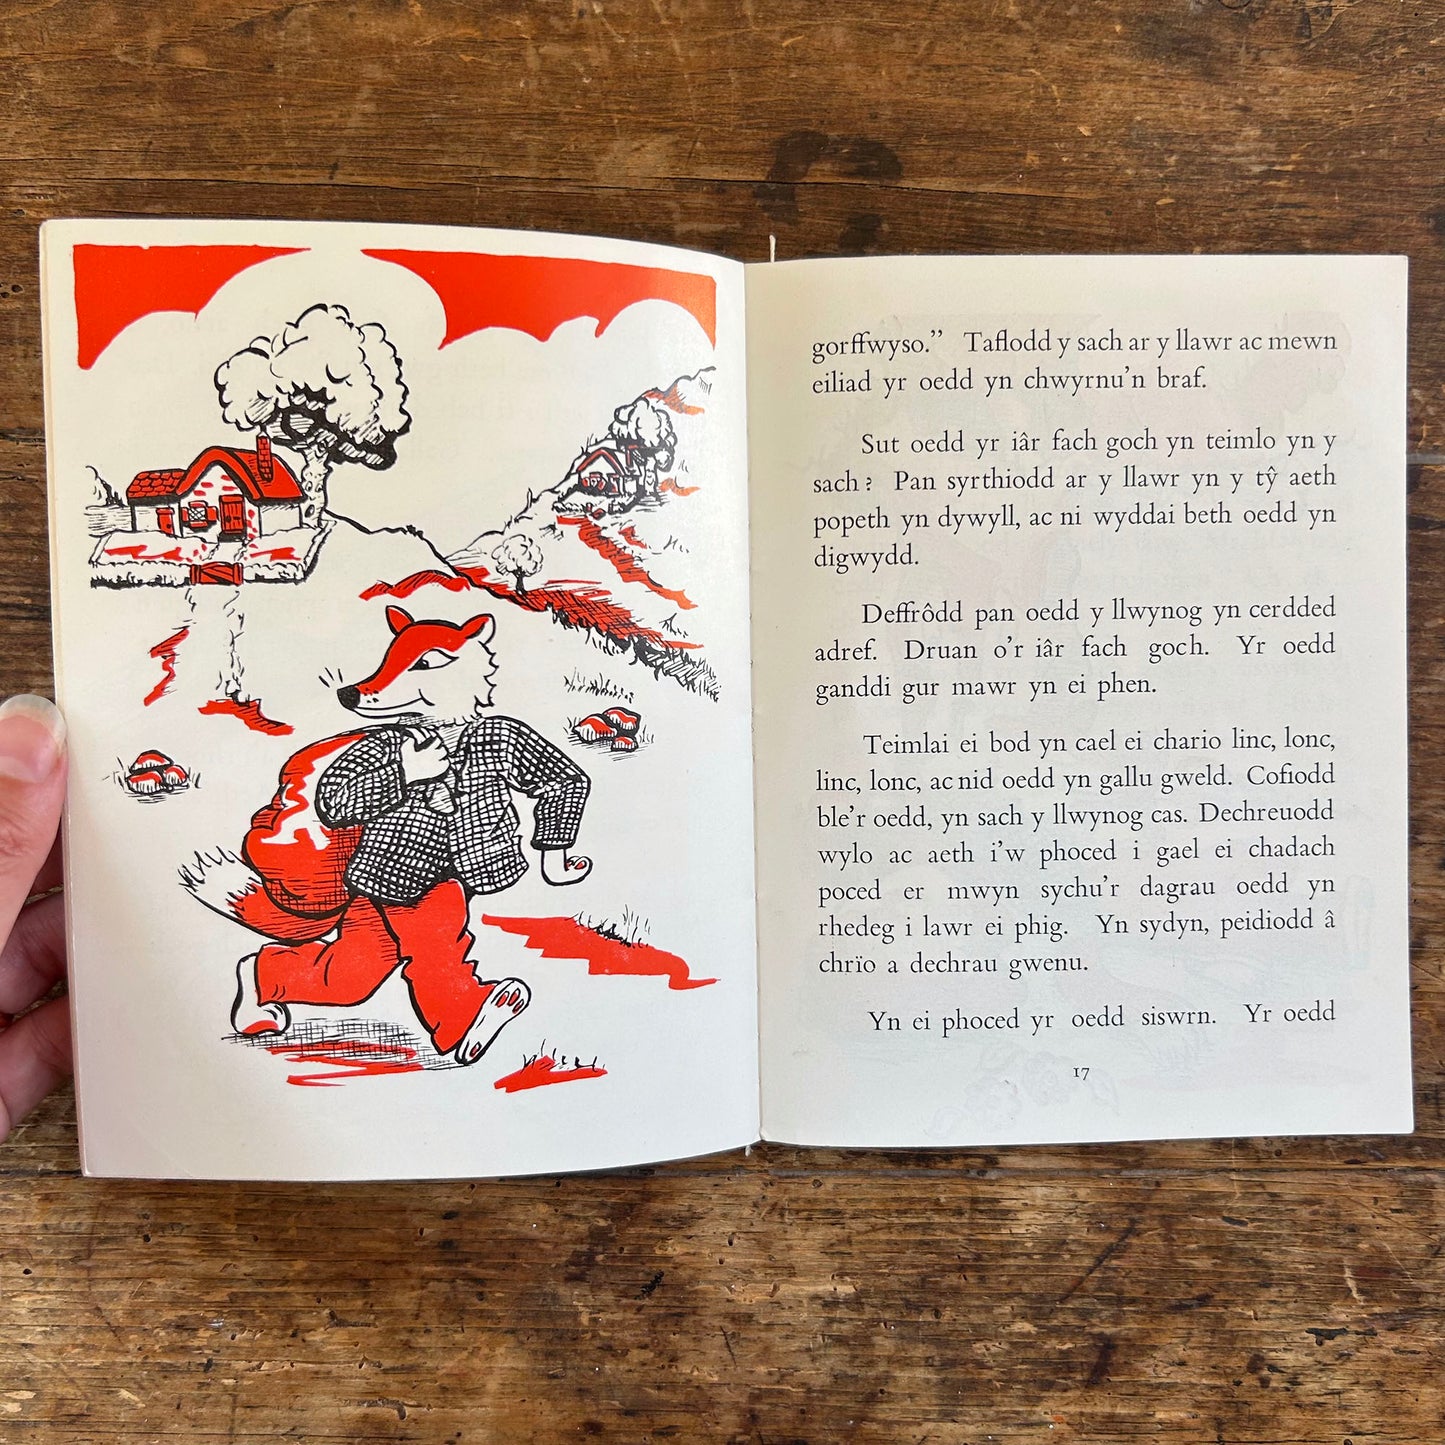 gorffwyso.” Taflodd y sach ar y llawr ac mewn
eiliad yr oedd yn chwyrnu’n braf.
Sut oedd yr iâr fach goch yn teimlo yn y
sach? Pan syrthiodd ar y llawr yn y tŷ aeth
popeth yn dywyll, ac ni wyddai beth oedd yn
digwydd.
Deffrôdd pan oedd y llwynog yn cerdded
adref. Druan o’r iâr fach goch. Yr oedd
ganddi gur mawr yn ei phen.
Teimlai ei bod yn cael ei chario linc, lonc,
linc, lonc, ac nid oedd yn gallu gweld. Cofiodd
ble’r oedd, yn sach y llwynog cas. Dechreuodd
wylo ac aeth i’w phoced i gael ei chadach
poced er mwyn sychu’r dagrau oedd yn
rhedeg i lawr ei phig. Yn sydyn, peidiodd â
chrïo a dechrau gwenu.
Yn ei phoced yr oedd siswrn. Yr oedd
17